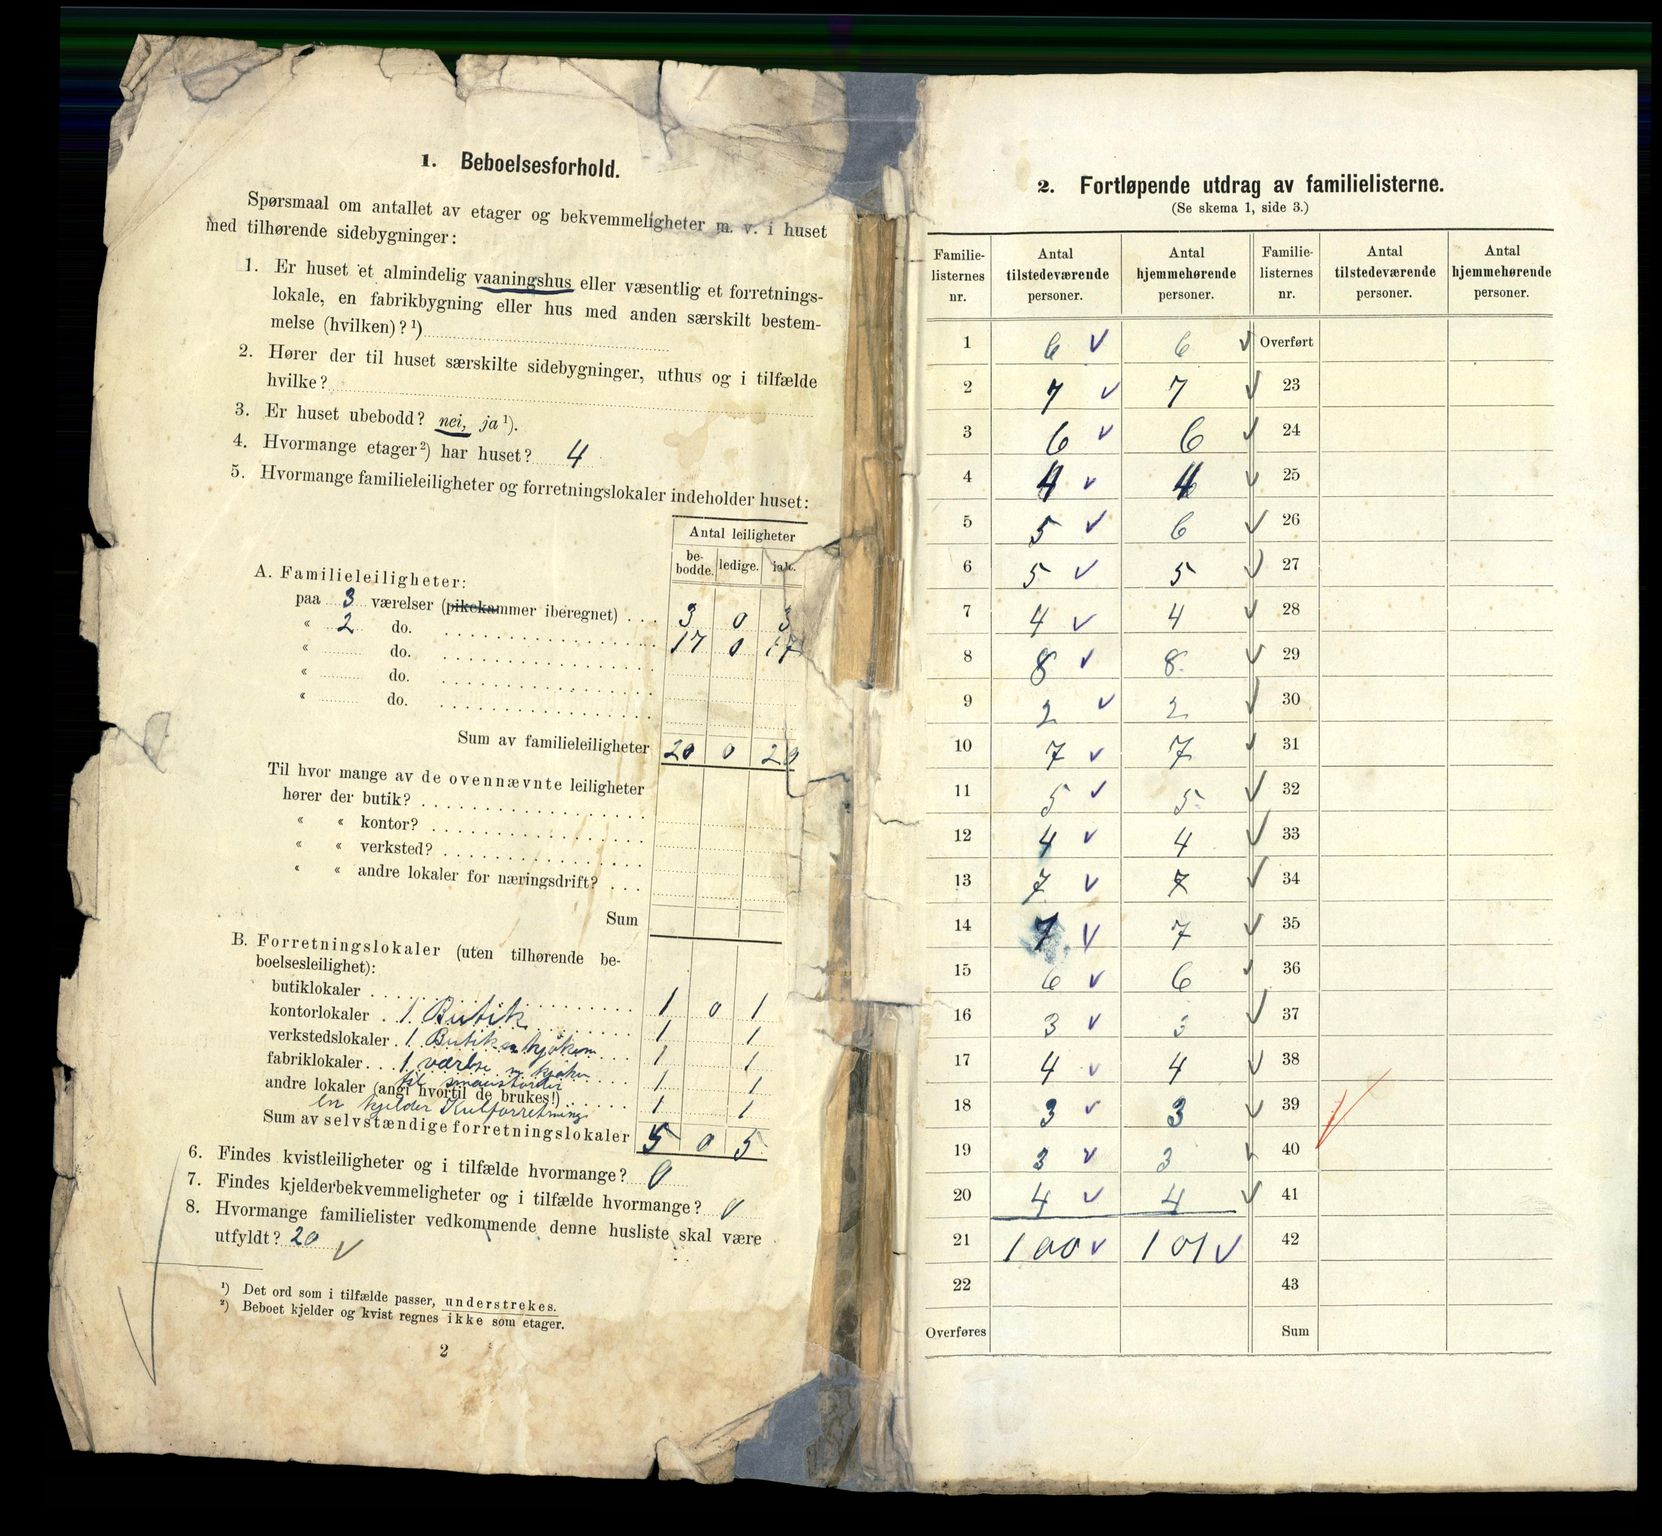 1. Beboelsesforhold.
Spørsmaal om antallet av etager og bekvemmeligheter m. v. i huset
med tilhørende sidebygninger:
1. Er huset et almindelig vaaningshus eller væsentlig et forretnings-
lokale, en fabrikbygning eller hus med anden særskilt bestem-
melse (hvilken)? ¹)
2. Hører der til huset særskilte sidebygninger, uthus og i tilfælde
hvilke?
3. Er huset ubebodd? nei, ja ¹).
4. Hvormange etager ²) har huset? 4
5. Hvormange familieleiligheter og forretningslokaler indeholder huset:
Antal leiligheter
be-bodde. ledige. ialt.
A. Familieleiligheter:
paa 3 værelser (pikekammer iberegnet) 3 0 3
« 2 do. 17 0 17
« do.
« do.
« do.
Sum av familieleiligheter 20 0 20
Til hvor mange av de ovennævnte leiligheter
hører der butik?
« « kontor?
« « verksted?
« « andre lokaler for næringsdrift?
Sum
B. Forretningslokaler (uten tilhørende be-
boelsesleilighet):
butiklokaler 1 0 1
kontorlokaler 1 Butik 1 1
verkstedslokaler 1 Butik kjøken 1 1
fabriklokaler 1 værelse m kjøken 1 1
til
andre lokaler (angi hvortil de brukes!) 1 1
en kjelder Kulforretning
Sum av selvstændige forretningslokaler 5 0 5
6. Findes kvistleiligheter og i tilfælde hvormange? 0
7. Findes kjelderbekvemmeligheter og i tilfælde hvormange? 0
8. Hvormange familielister vedkommende denne husliste skal være
utfyldt? 20
¹) Det ord som i tilfælde passer, understrekes.
²) Beboet kjelder og kvist regnes ikke som etager.
2
2. Fortløpende utdrag av familielisterne.
(Se skema 1, side 3.)
Familie-listernes nr. Antal tilstedeværende personer. Antal hjemmehørende personer. Familie-listernes nr. Antal tilstedeværende personer. Antal hjemmehørende personer.
1 6 6 Overført
2 7 7 23
3 6 6 24
4 4 4 25
5 5 6 26
6 5 5 27
7 4 4 28
8 8 8 29
9 2 2 30
10 7 7 31
11 5 5 32
12 4 4 33
13 7 7 34
14 7 7 35
15 6 6 36
16 3 3 37
17 4 4 38
18 3 3 39
19 3 3 40
20 4 4 41
21 100 101 42
22 43
Overføres Sum